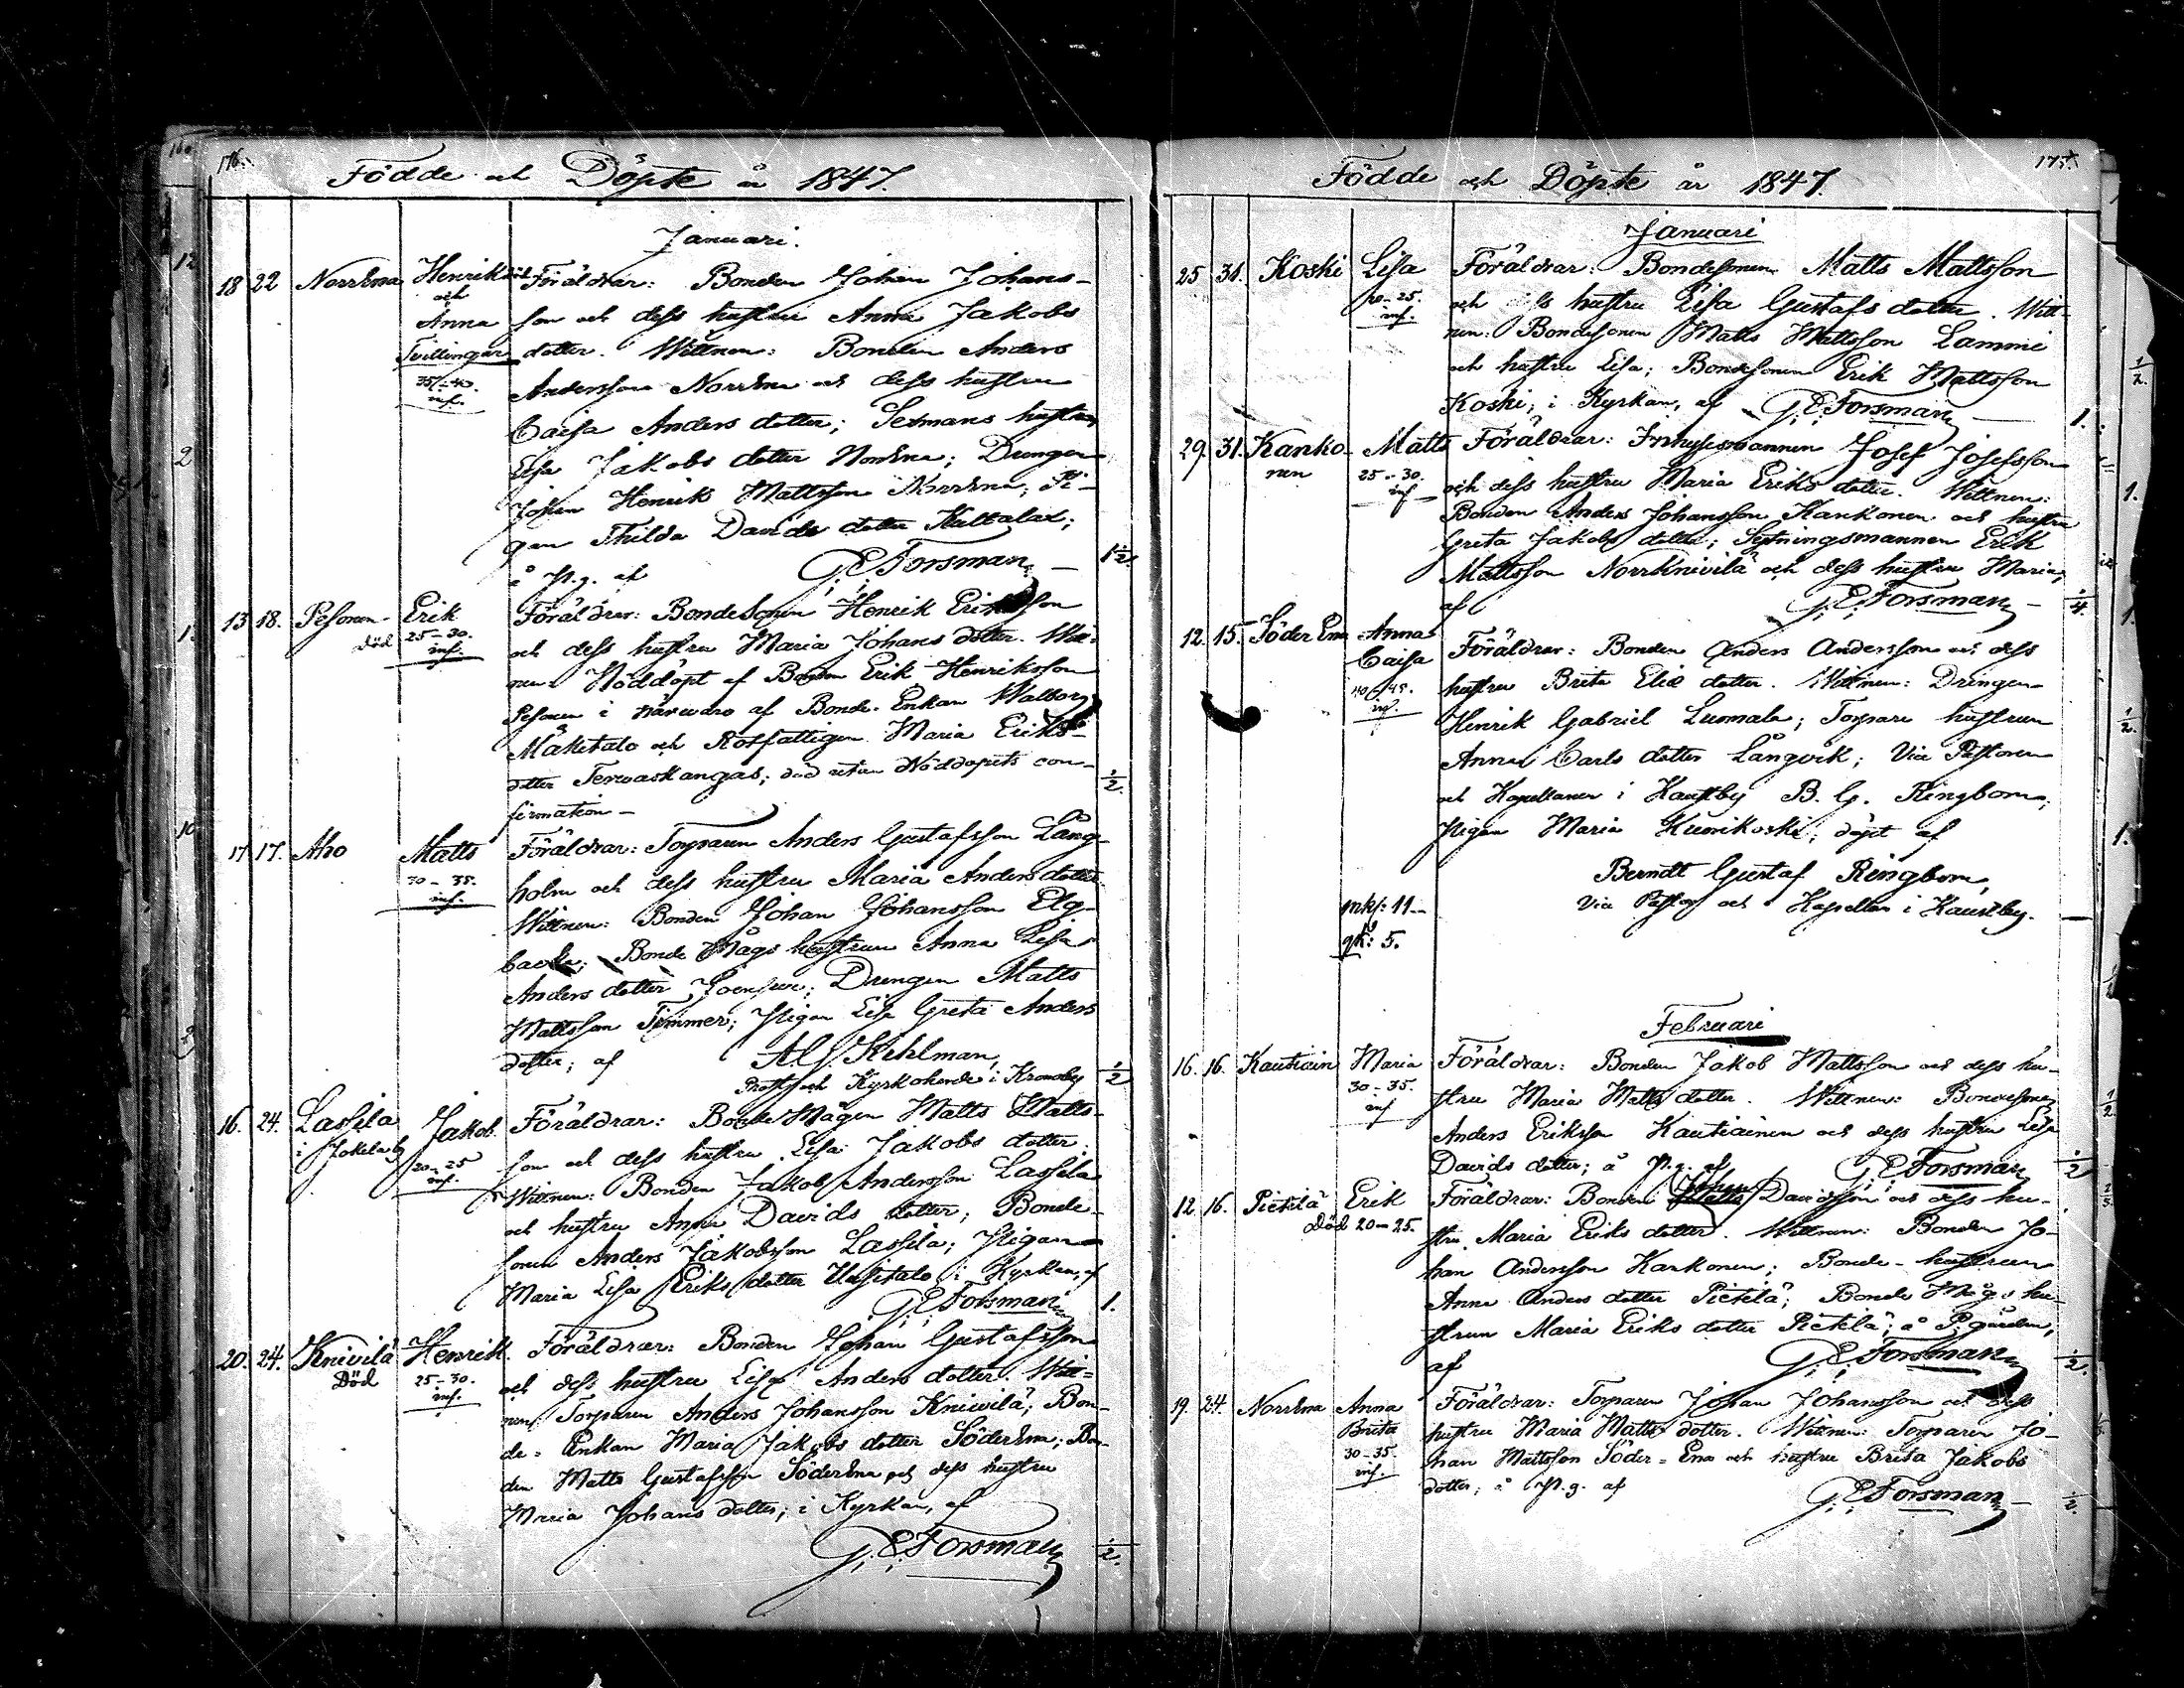 176.
Födde och Döpte år 1847.
Januari.
18 22 Norrena Henrik och Anna Tvillingar 35-40. inf.
Föräldrar: Bonden Johan Johans-
son och dess hustru Anna Jakobs
dotter. Wittnen: Bonden Anders
Andersson Norrena och dess hustru
Caisa Anders dotter; Sexmans hustrun
Lisa Jakobs dotter Norrena; Drengen
Johan Henrik Mattsson Norrena; Pi-
gan Thilda Davids dotter Kaltalax;
å P.g. af G. E. Forsman 1 1/2
13 18. Pesonen död Erik 25-30. inf.
Föräldrar: Bondesonen Henrik Eriksson
och dess hustru Maria Johans dotter. Witt-
nen: Nöddöpt af Bonden Erik Henriksson
Pesonen i närvaro af Bonde-Enkan Walborg
Mäkitalo och Rotfattigen Maria Eriks-
dotter Terwaskangas; död utan Nöddopets con-
firmation - 1/2.
17 17. Aho Matts 30-35. inf.
Föräldrar: Torparen Anders Gustafsson Lång-
holm och dess hustru Maria Anders dotter.
Wittnen: Bonden Johan Johansson Elg-
backa; Bonde Mågs hustrun Anna Lisa
Anders dotter Joensuu; Drengen Matts
Mattsson Timmer; Pigan Lisa Greta Anders
dotter; af A. G. Kihlman,
Prost och Kyrkoherde i Kronoby 1/2
16. 24. Lassila i Jokelaby Jakob 20-25 inf.
Föräldrar: Bonde Mågen Matts Matts-
son och dess hustru Lisa Jakobs dotter.
Wittnen: Bonden Jakob Andersson Lassila
och hustru Anna Davids dotter; Bonde-
sonen Anders Jakobsson Lassila; Pigan
Maria Lisa Eriks dotter Uusitalo i Kyrkan, af
G. E. Forsman 1.
20. 24. Knivilä Död Henrik. 25-30. inf.
Föräldrar: Bonden Johan Gustafsson
och dess hustru Lisa Anders dotter. Witt-
nen: Torparen Anders Johansson Knivilä; Bon-
de-Enkan Maria Jakobs dotter Söderena; Bon-
den Matts Gustafsson Söderena och dess hustru
Maria Johans dotter; i Kyrkan, af
G. E. Forsman 1/2.
Födde och Döpte år 1847.
Januari
25 31. Koski Lisa 20-25. inf.
Föräldrar: Bondesonen Matts Mattsson
och dess hustru Lisa Gustafs dotter. Witt-
nen: Bondesonen Matts Mattsson Lammi
och hustru Lisa; Bondesonen Erik Mattsson
Koski; i Kyrkan, af G. E. Forsman 1.
29. 31. Kankonen Matts 25-30. inf
Föräldrar: Inhysesmannen Josef Josefsson
och dess hustru Maria Eriks dotter. Wittnen:
Bonden Anders Johansson Kankonen och hustru
Greta Jakobs dotter; Sytningsmannen Erik
Mattsson Norrknivilä och dess hustru Maria;
af G. E. Forsman 1/4.
12. 15. Söder Ena Anna Caisa 40-45. inf.
Föräldrar: Bonden Anders Andersson och dess
hustru Brita Eliæ dotter. Wittnen: Drengen
Henrik Gabriel Lumala; Torpare hustrun
Anna Carls dotter Långvik; Vice Pastoren
och Kapellanen i Kaustby B. G. Ringbom;
Pigan Maria Kuorikoski; döpt af
Berndt Gustaf Ringbom,
Vice Pastor och Kapellan i Kaustby.
mk: 11
qk: 5.
Februari
16. 16. Kautiain Maria 30-35. inf
Föräldrar: Bonden Jakob Mattsson och dess hu-
stru Maria Matts dotter. Wittnen: Bondesonen
Anders Eriksson Kautiainen och dess hustru Lisa
Davids dotter; å P.g. af G. E. Forsman 1/2
12 16. Pietilä Död Erik 20-25.
Föräldrar: Bonden Johan Davidsson och dess hu-
stru Maria Eriks dotter. Wittnen: Bonden Jo-
han Andersson Kankonen; Bonde-hustrun
Anna Anders dotter Pietilä; Bonde Mågs hu-
strun Maria Eriks dotter Pietilä; å P.gården,
af G. E. Forsman 1/2.
19. 24. Norrena Anna Brita 30-35. inf.
Föräldrar: Torparen Johan Johansson och dess
hustru Maria Matts dotter. Wittnen: Torparen Jo-
han Mattsson Söder-Ena och hustru Brita Jakobs
dotter; å P.g. af G. E. Forsman 1/2.